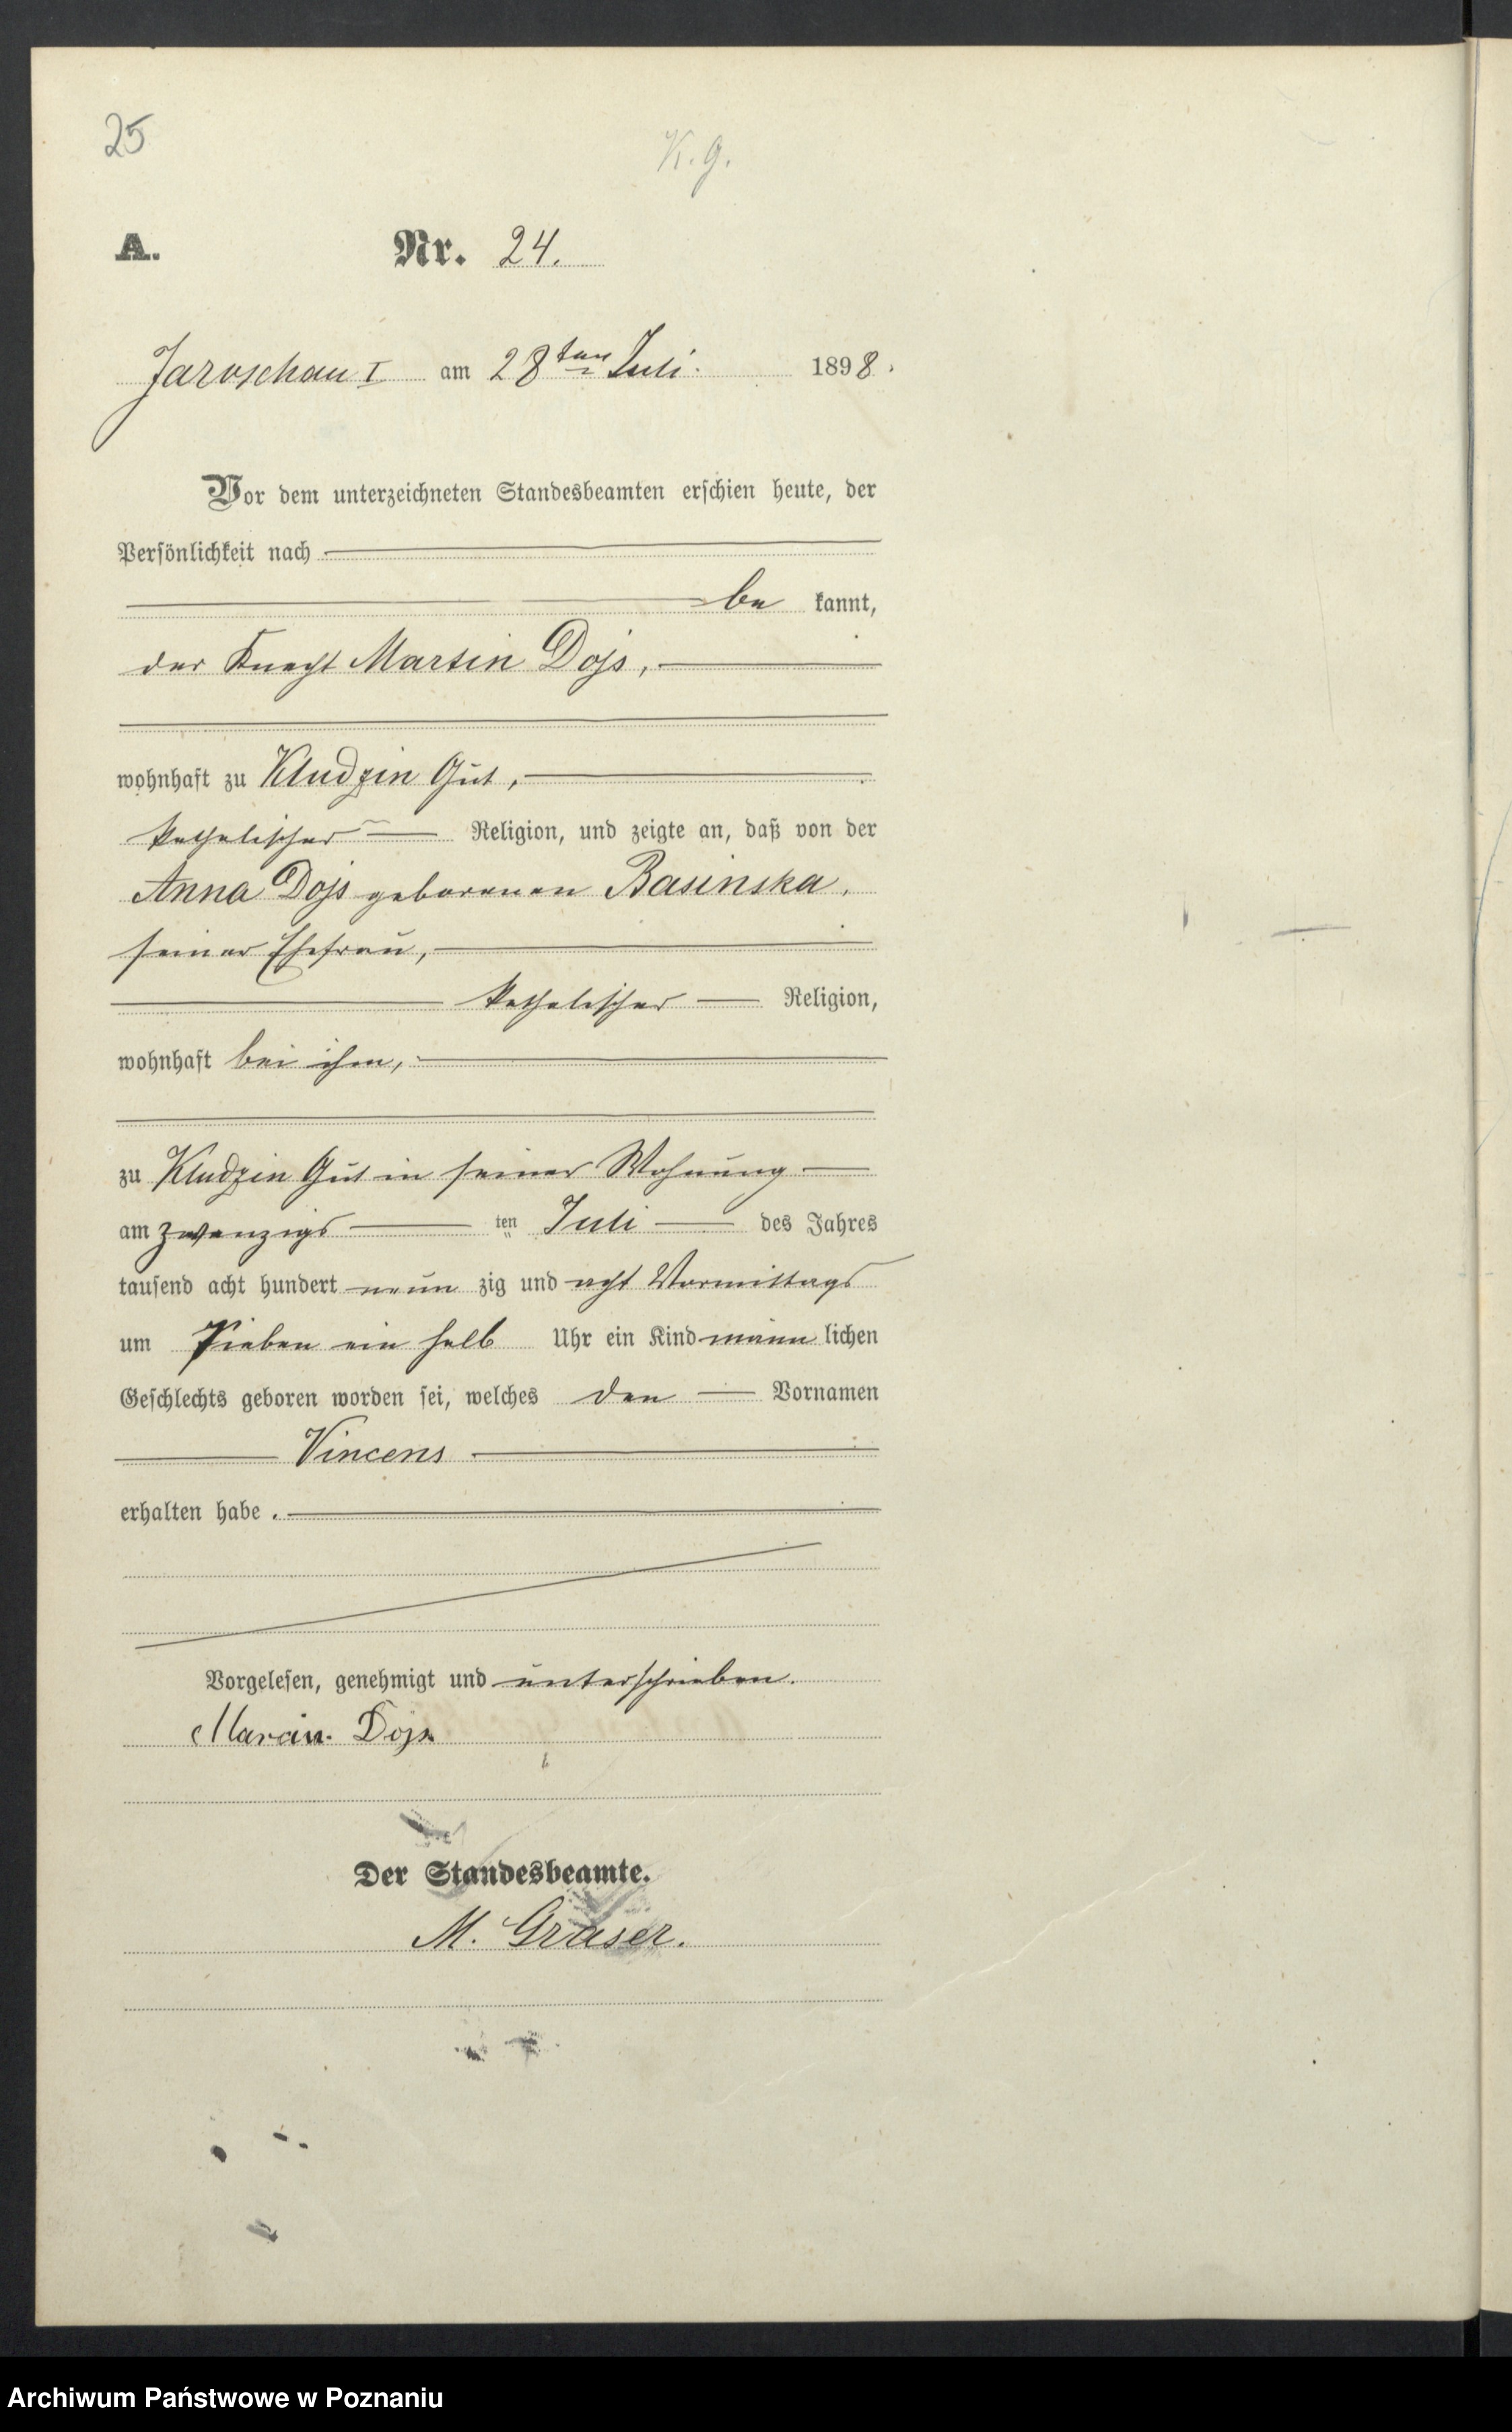 25
K. g.
A. Nr. 24.
Jaroschau I am 28ten Juli. 1898.
Vor dem unterzeichneten Standesbeamten erschien heute, der
Persönlichkeit nach
be kannt,
der Knecht Martin Dojs,
wohnhaft zu Kludzin Gut,
katholischer Religion, und zeigte an, daß von der
Anna Dojs geborenen Basinska,
seiner Ehefrau,
katholischer Religion,
wohnhaft bei ihm,
zu Kludzin Gut in seiner Wohnung
am zwanzigs ten Juli des Jahres
tausend acht hundert neun zig und acht Vormittags
um sieben ein halb Uhr ein Kind männ lichen
Geschlechts geboren worden sei, welches den Vornamen
Vincens
erhalten habe.
Vorgelesen, genehmigt und unterschrieben.
Marcin Dojs
Der Standesbeamte.
M. Graser.
Archiwum Państwowe w Poznaniu